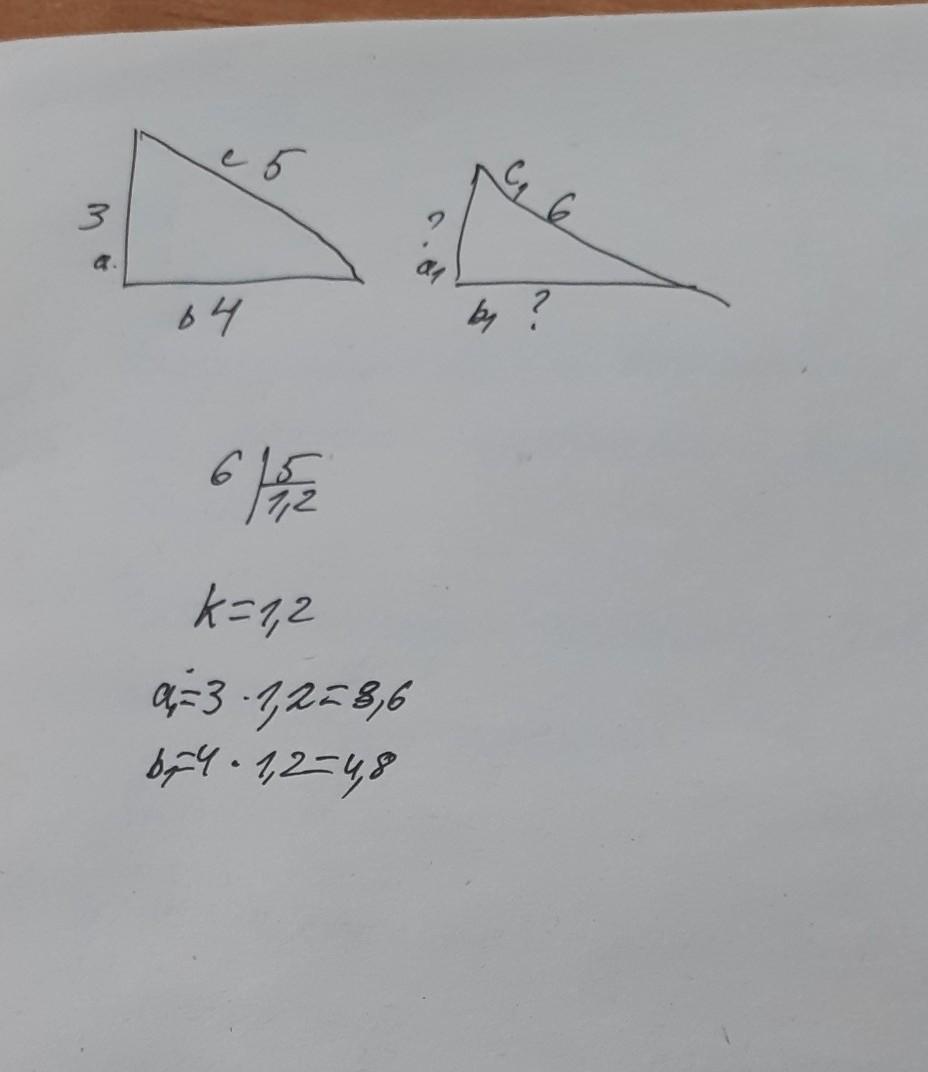 c 5
3
a
b 4
c₁ 6
?
a₁
b₁ ?
6 | 5
1,2
k=1,2
a₁=3 · 1,2=3,6
b₁=4 · 1,2=4,8